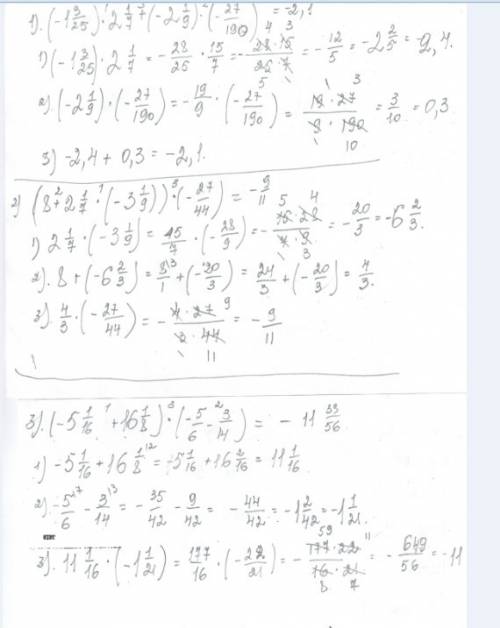 1). (-1 3/25)·2 1/7 + (-2 1/9)·(-27/190) = -2,1
1) (-1 3/25)·2 1/7 = -28/25 · 15/7 = -28·15/25·7 = -12/5 = -2 2/5 = -2,4.
2). (-2 1/9)·(-27/190) = -19/9 · (-27/190) = 19·27/9·190 = 3/10 = 0,3
3) -2,4 + 0,3 = -2,1.
2) (8 + 2 1/7 · (-3 1/9))·(-27/44) = -9/11
1) 2 1/7 · (-3 1/9) = 15/7 · (-28/9) = -15·28/7·9 = -20/3 = -6 2/3.
2). 8 + (-6 2/3) = 8/1 + (-20/3) = 24/3 + (-20/3) = 4/3.
3). 4/3 · (-27/44) = -4·27/3·44 = -9/11
3). (-5 1/16 + 16 1/8)·(-5/6 - 3/14) = -11 33/56
1) -5 1/16 + 16 1/8 = -5 1/16 + 16 2/16 = 11 1/16
2) -5/6 - 3/14 = -35/42 - 9/42 = -44/42 = -1 2/42 = -1 1/21.
3). 11 1/16 · (-1 1/21) = 177/16 · (-22/21) = -177·22/16·21 = -649/56 = -11